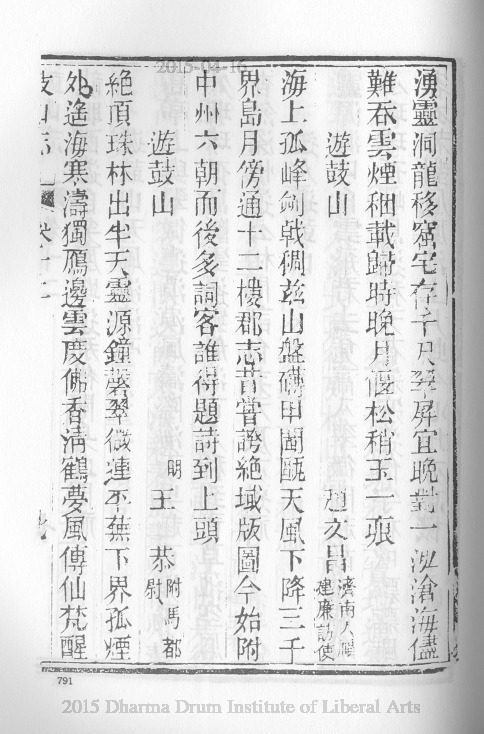 2015-04-16
湧靈洞龍移窟宅存千尺翠屏宜晚對一泓滄海儘
難吞雲煙稛載歸時晚月偃松稍玉一痕
遊鼓山 趙文昌濟南人 建廉訪使
海上孤峰劍戟稠茲山盤礴甲閩甌天風下降三千
界島月傍通十二樓郡志昔嘗誇絕域版圖今始附
中州六朝而後多詞客誰得題詩到上頭
遊鼓山 明王恭附馬都尉
絕頂珠林出半天靈源鐘磬翠微連平蕪下界孤煙
外遙海寒濤獨鴈邊雲慶佛香清鶴夢風傳仙梵醒
鼓山志 卷十二
791
2015 Dharma Drum Institute of Liberal Arts